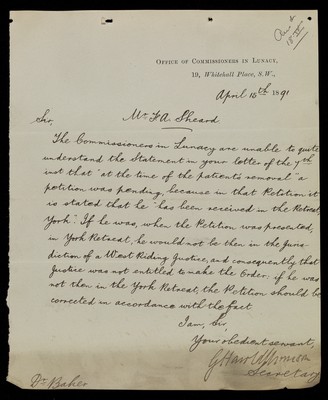 OFFICE OF COMMISSIONERS IN LUNACY,
19, Whitehall Place, S.W.,
April 15th 1891
Sir,
Mr F.A. Sheard
The Commissioners in Lunacy are unable to quite
understand the Statement in your letter of the 7th
inst that "at the time of the patient's removal" a
petition was pending, because in that Petition it
is stated that he "has been received in the Retreat,
York". If he was, when the Petition was presented,
in York Retreat, he would not be then in the Juris-
diction of a West Riding Justice, and consequently that
Justice was not entitled to make the Order: if he was
not then in the York Retreat, the Petition should be
corrected in accordance with the fact
I am, Sir,
Your obedient servant,
Secretary
Dr Baker